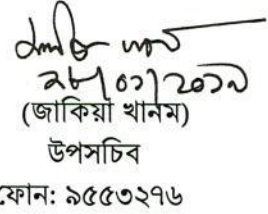 ২৮/০১/২০১৯
(জাকিয়া খানম)
উপসচিব
ফোন: ৯৫৫৩২৭৬